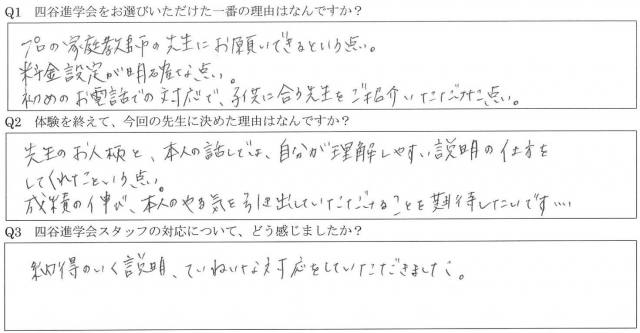 Q1　四谷進学会をお選びいただけた一番の理由はなんですか？
プロの家庭教師の先生にお願いできるという点。
料金設定が明確な点。
初めのお電話での対応で、子供に合う先生をご紹介いただけた点。
Q2　体験を終えて、今回の先生に決めた理由はなんですか？
先生のお人柄と、本人の話しでは、自分が理解しやすい説明の仕方を
してくれたという点。
成績の伸び、本人のやる気を引き出していただけることを期待したいです….
Q3　四谷進学会スタッフの対応について、どう感じましたか？
納得のいく説明、ていねいな対応をしていただきました。